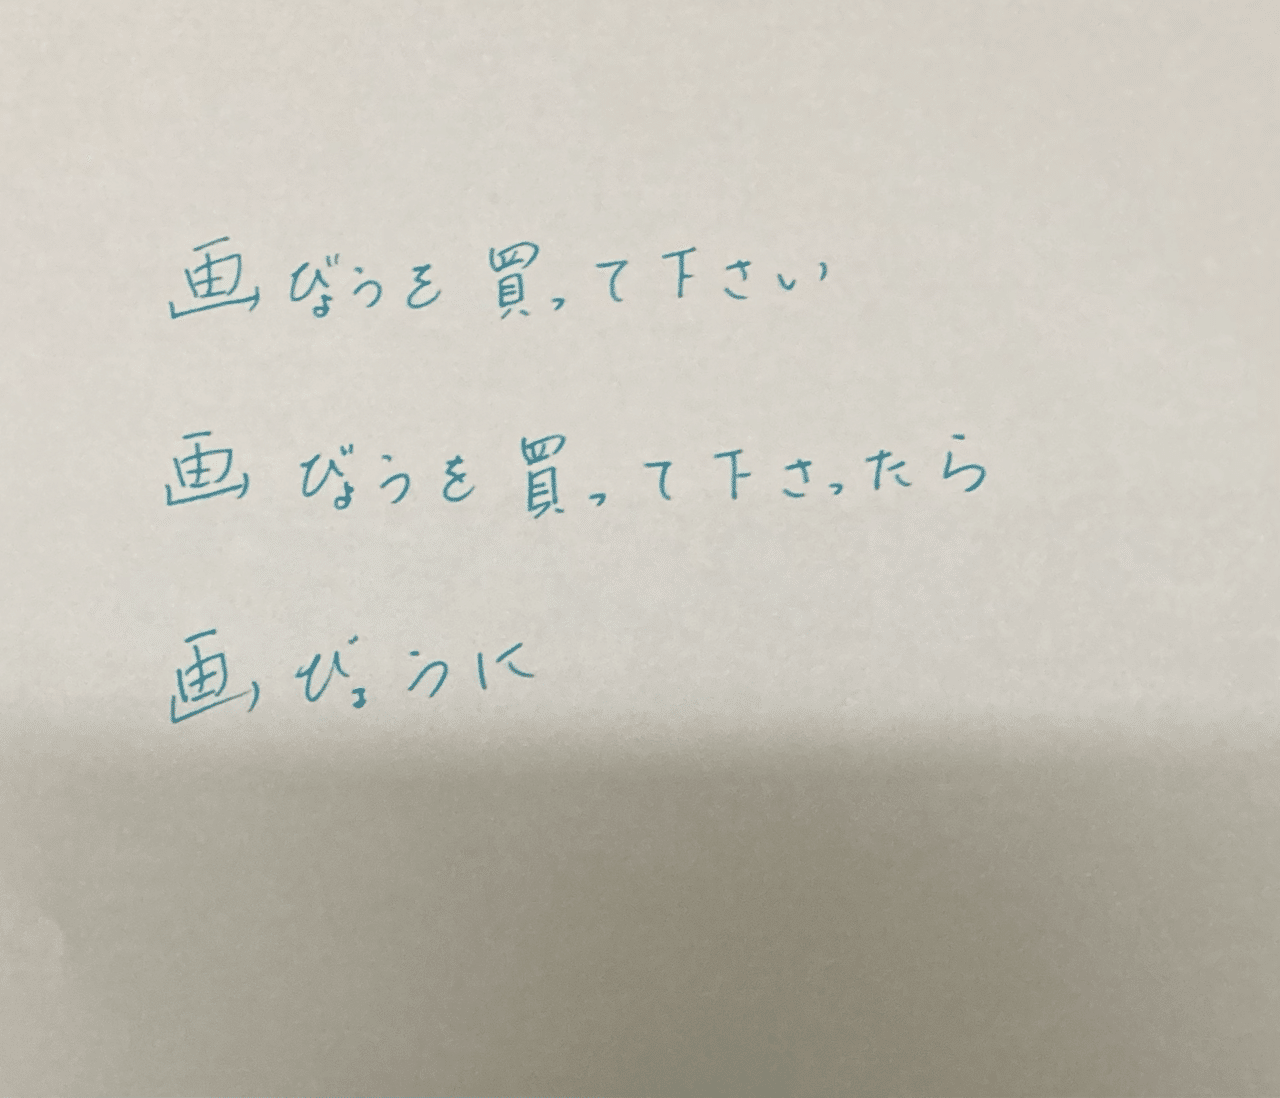 画びょうを買って下さい
画びょうを買って下さったら
画びょうに